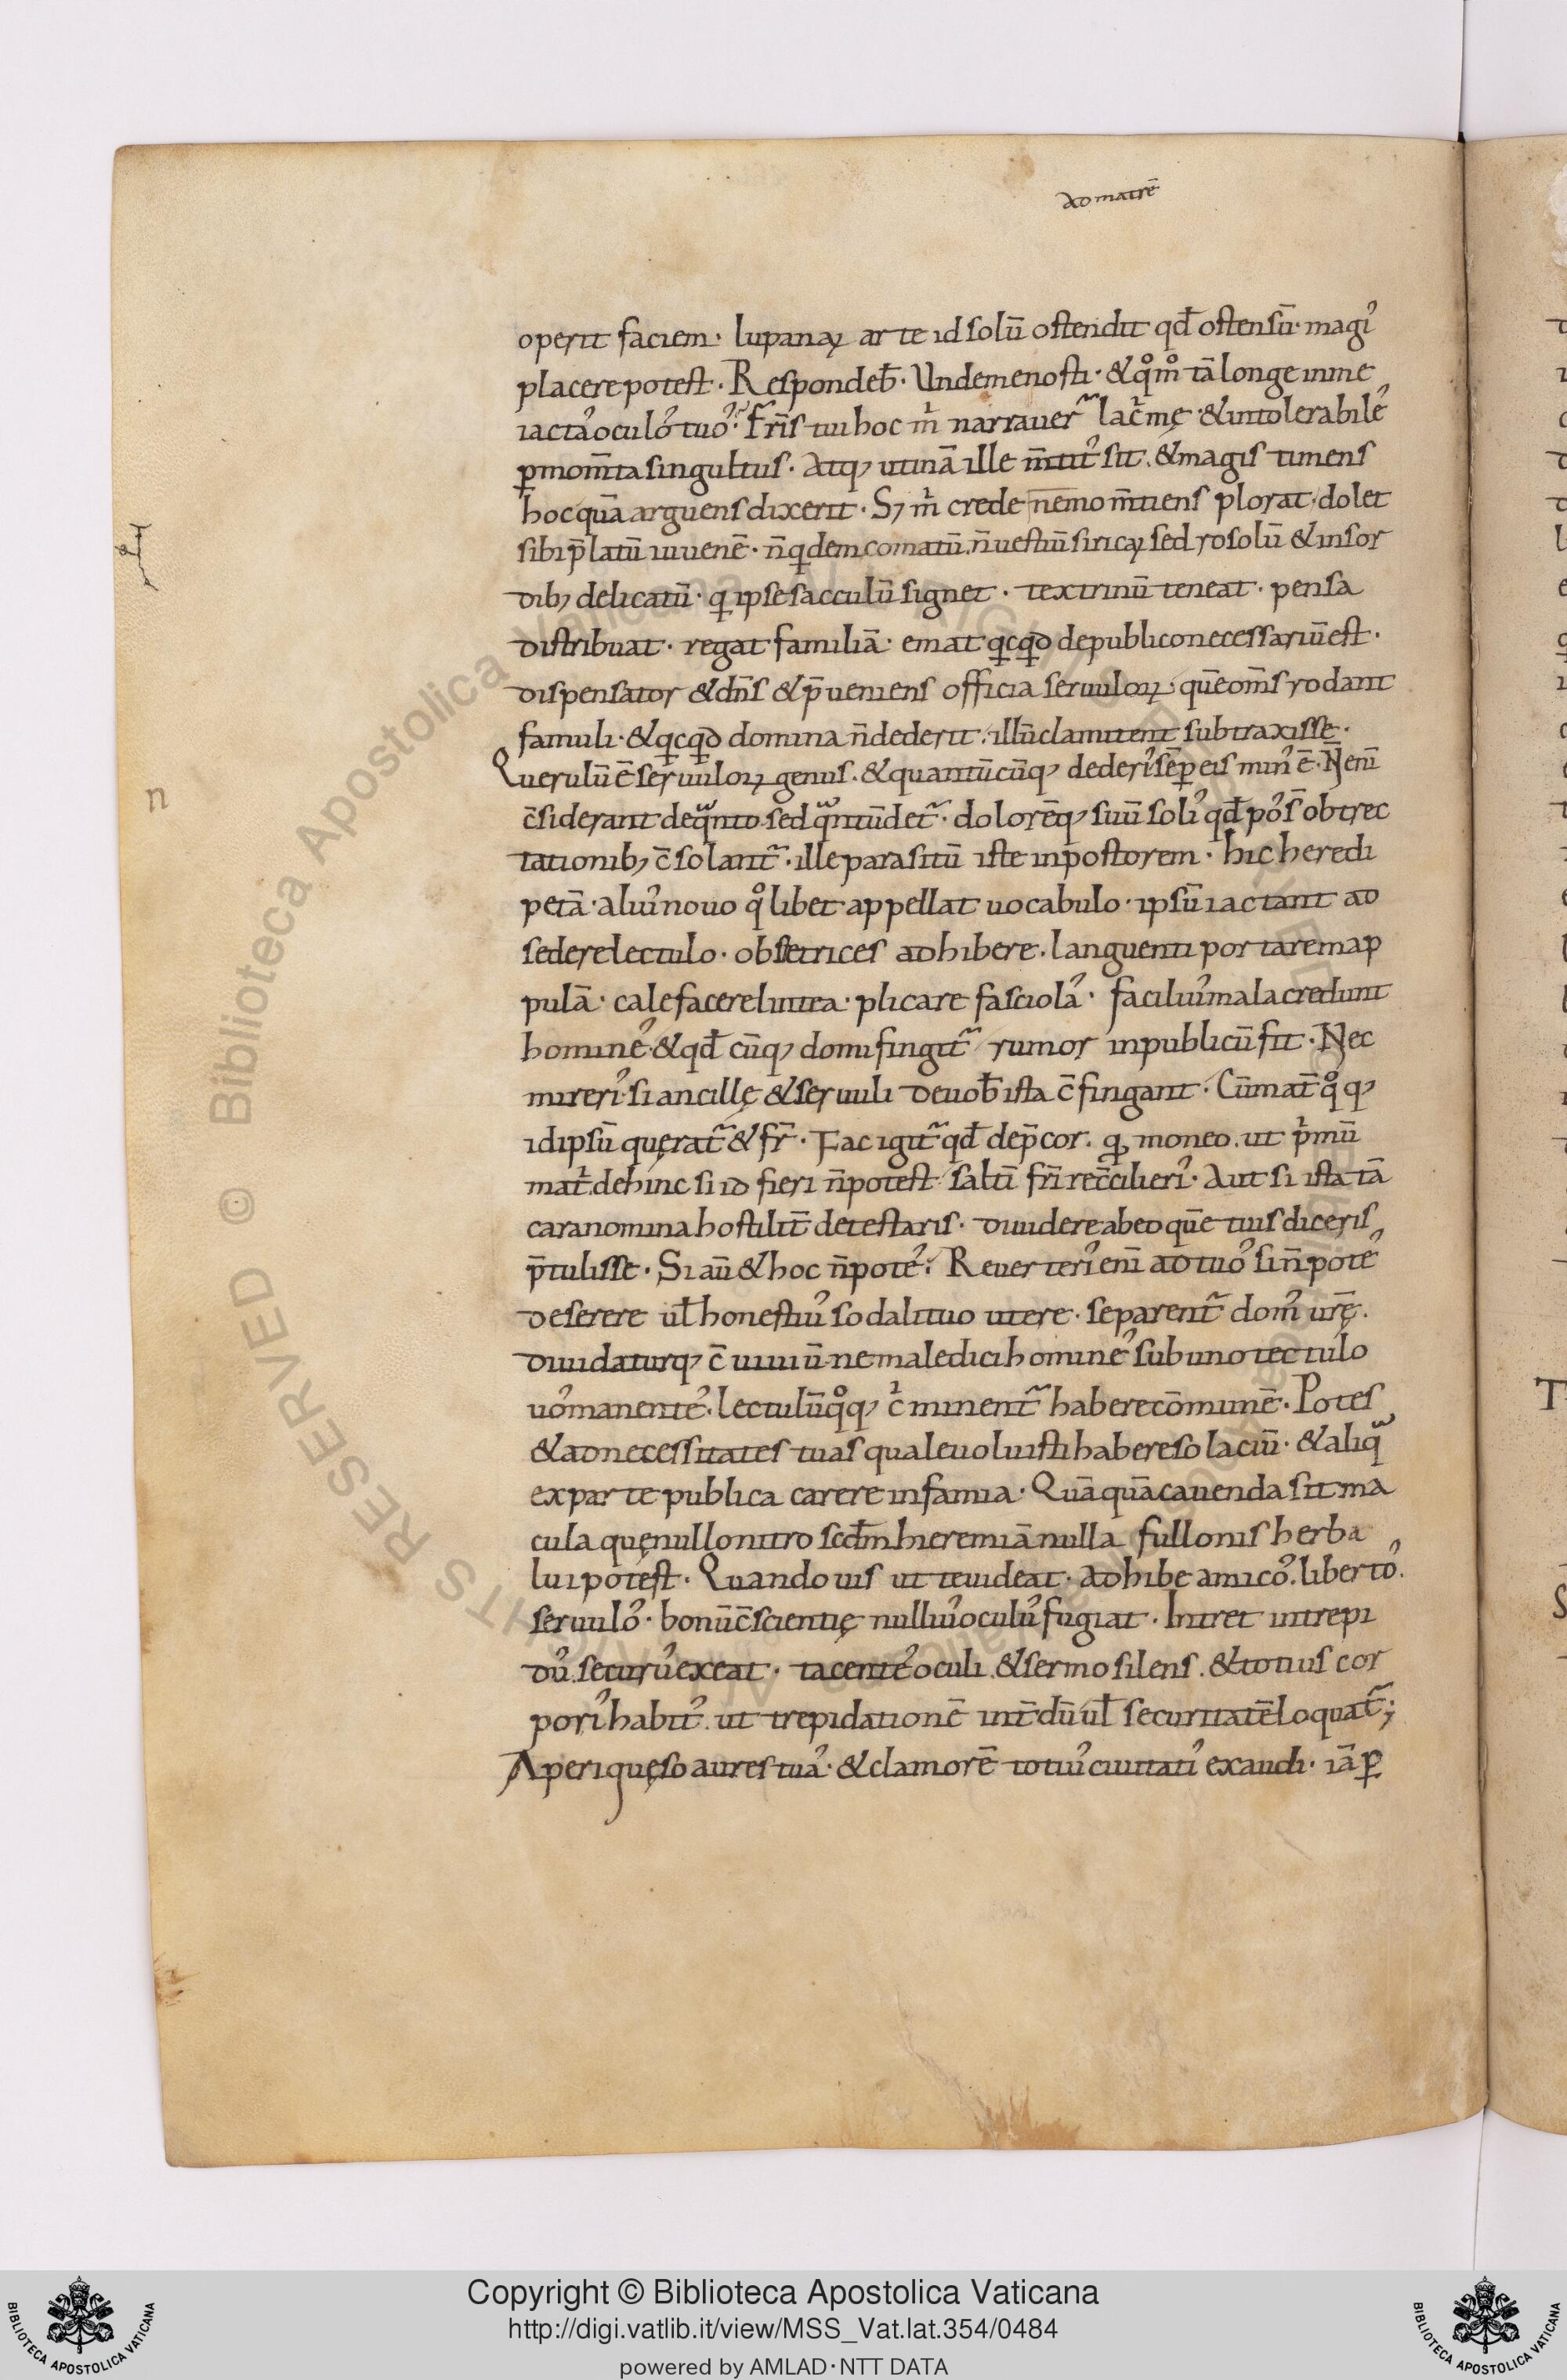 ad matrē
operit faciem· lupanaꝝ arte id solū ostendit qđ ostensū· magiˀ
placere potest· Respondeb̄· Unde me nosti· & qͦmͦ tā longe in me
iactaˀ oculoˀ tuoˀ? Fr̄is tui hoc m̄ narrauer̄ lac̄mę· & intolerabileˀ
ꝑ mom̄ta singultus· Atq; utinā ille m̄titˀ sit· & magis timens
hoc quā arguens dixerit· S; m̄ crede nemo m̄tiens plorat· dolet
sibi p̄latū iuuenē· n̄ qͥdem comatū· n̄ uestiū siricaꝝ sed rosolū & in sor
dib; delicatū· qͥ ipse sacculū signet· textrinū teneat· pensa
distribuat· regat familiā· emat qͥcqͥd de publico necessariū est·
dispensator & dn̄s & p̄ueniens officia seruuloꝝ· quē om̄s rodant
famuli· & qͥcqͥd domina n̄ dederit· illū clamitent subtraxisse·
Querulū ē seruuloꝝ genus· & quantūcūq; dederiˀ sēꝑ eis minˀ ē· N̄ enī
c̄siderant de qͣnto· sed qͣntū det̄· dolorēq; suū soliˀ qđ poˀs̄ obtrec
tationib; c̄solant̄· ille parasitū iste inpostorem· hic heredi
petā· aliuˀ nouo qͦlibet appellat uocabulo· ipsū iactant ad
sedere lectulo· obstetrices adhibere· languenti portare map
pulā· calefacere lintea· plicare fasciolaˀ· faciliuˀ mala credunt
homineˀ· & qđcūq; domi fingit̄ rumor in publicū fit· Nec
mireriˀ· si ancillę & seruuli de uob̄ ista c̄fingant· Cū mat̄ qͦq;
id ipsū quęrat̄ & fr̄· Fac igit̄ qđ dep̄cor· qͥ moneo· ut pͥmū
matͥ· dehinc si id fieri n̄ potest saltī fr̄i rec̄cilieriˀ· Aut si ista tā
cara nomina hostilit̄ detestaris· diuidere ab eo quē tuis diceris
p̄tulisse· Si aū & hoc n̄ poteˀ· Reuerteriˀ enī ad tuoˀ si n̄ poteˀ
deserere ul̄ honestiuˀ sodali tuo utere· separent̄ domˀ ur̄ę·
diuidaturq; c̄uiuiū· ne maledici homineˀ sub uno tectulo
uoˀ manenteˀ· lectulū qͦq; cͥminent̄ habere cōmunē· Potes
& ad necessitates tuas quale uoluisti habere solaciū· & aliqͣ
ex parte publica carere infamia· Quāquā cauenda sit ma
cula quę nullo nitro scd̄m hieremiā nulla fullonis herba
lui potest· Quando uis ut te uideat· adhibe amicoˀ· libertoˀ·
seruuloˀ· bonū c̄scientię nulliuˀ oculuˀ fugiat· Intret intrepi
duˀ· securuˀ exeat· tacenteˀ oculi· & sermo silens· & totius cor
poriˀ habitˀ· ut trepidationē int̄dū ul̄ securitatē loquat̄;
Aperi quęso aures tuaˀ· & clamorē totiuˀ ciuitatiˀ exaudi· iā ꝑ
n
Copyright © Biblioteca Apostolica Vaticana
http://digi.vatlib.it/view/MSS_Vat.lat.354/0484
powered by AMLAD·NTT DATA
BIBLIOTECA APOSTOLICA VATICANA
BIBLIOTECA APOSTOLICA VATICANA